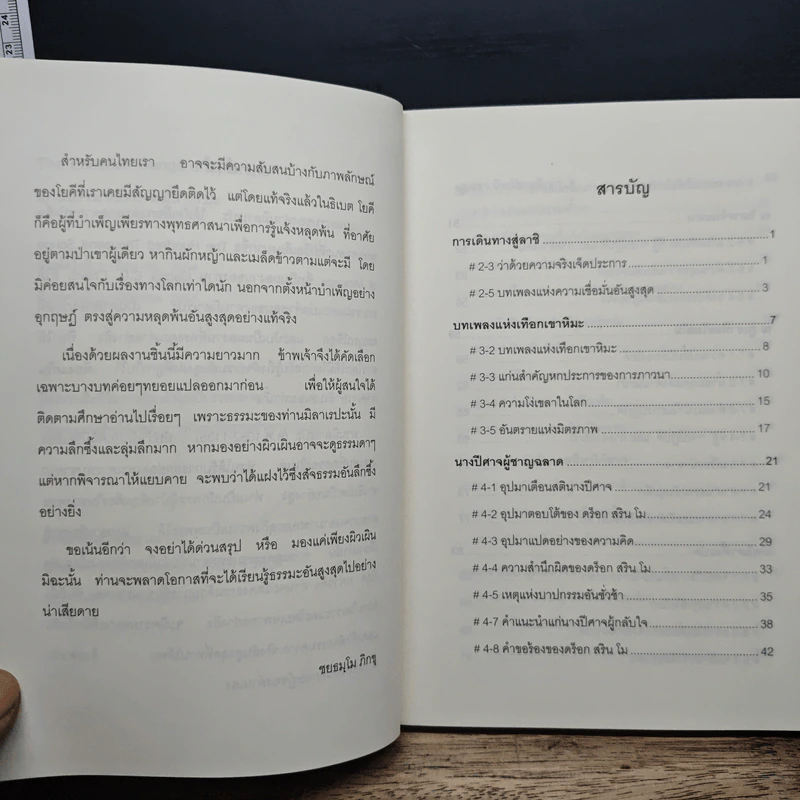 24
23
สำหรับคนไทยเรา อาจจะมีความสับสนบ้างกับภาพลักษณ์
ของโยคีที่เราเคยมีสัญญายึดติดไว้ แต่โดยแท้จริงแล้วในธิเบต โยคี
ก็คือผู้ที่บำเพ็ญเพียรทางพุทธศาสนาเพื่อการรู้แจ้งหลุดพ้น ที่อาศัย
อยู่ตามป่าเขาผู้เดียว หากินผักหญ้าและเมล็ดข้าวตามแต่จะมี โดย
มิค่อยสนใจกับเรื่องทางโลกเท่าใดนัก นอกจากตั้งหน้าบำเพ็ญอย่าง
อุกฤษฏ์ ตรงสู่ความหลุดพ้นอันสูงสุดอย่างแท้จริง
เนื่องด้วยผลงานชิ้นนี้มีความยาวมาก ข้าพเจ้าจึงได้คัดเลือก
เฉพาะบางบทค่อยๆทยอยแปลออกมาก่อน เพื่อให้ผู้สนใจได้
ติดตามศึกษาอ่านไปเรื่อยๆ เพราะธรรมะของท่านมิลาเรปะนั้น มี
ความลึกซึ้งและลุ่มลึกมาก หากมองอย่างผิวเผินอาจจะดูธรรมดาๆ
แต่หากพิจารณาให้แยบคาย จะพบว่าได้แฝงไว้ซึ่งสัจธรรมอันลึกซึ้ง
อย่างยิ่ง
ขอเน้นอีกว่า จงอย่าได้ด่วนสรุป หรือ มองแค่เพียงผิวเผิน
มิฉะนั้น ท่านจะพลาดโอกาสที่จะได้เรียนรู้ธรรมะอันสูงสุดไปอย่าง
น่าเสียดาย
ชยธมฺโม ภิกขุ
สารบัญ
การเดินทางสู่ลาชิ 1
# 2-3 ว่าด้วยความจริงเจ็ดประการ 1
# 2-5 บทเพลงแห่งความเชื่อมั่นอันสูงสุด 3
บทเพลงแห่งเทือกเขาหิมะ 7
# 3-2 บทเพลงแห่งเทือกเขาหิมะ 8
# 3-3 แก่นสำคัญหกประการของการภาวนา 10
# 3-4 ความโง่เขลาในโลก 15
# 3-5 อันตรายแห่งมิตรภาพ 17
นางปีศาจผู้ชาญฉลาด 21
# 4-1 อุปมาเตือนสตินางปีศาจ 21
# 4-2 อุปมาตอบโต้ของ ดร็อก สริน โม 24
# 4-3 อุปมาแปดอย่างของความคิด 29
# 4-4 ความสำนึกผิดของดร็อก สริน โม 33
# 4-5 เหตุแห่งบาปกรรมอันชั่วช้า 35
# 4-7 คำแนะนำแก่นางปีศาจผู้กลับใจ 38
# 4-8 คำขอร้องของดร็อก สริน โม 42